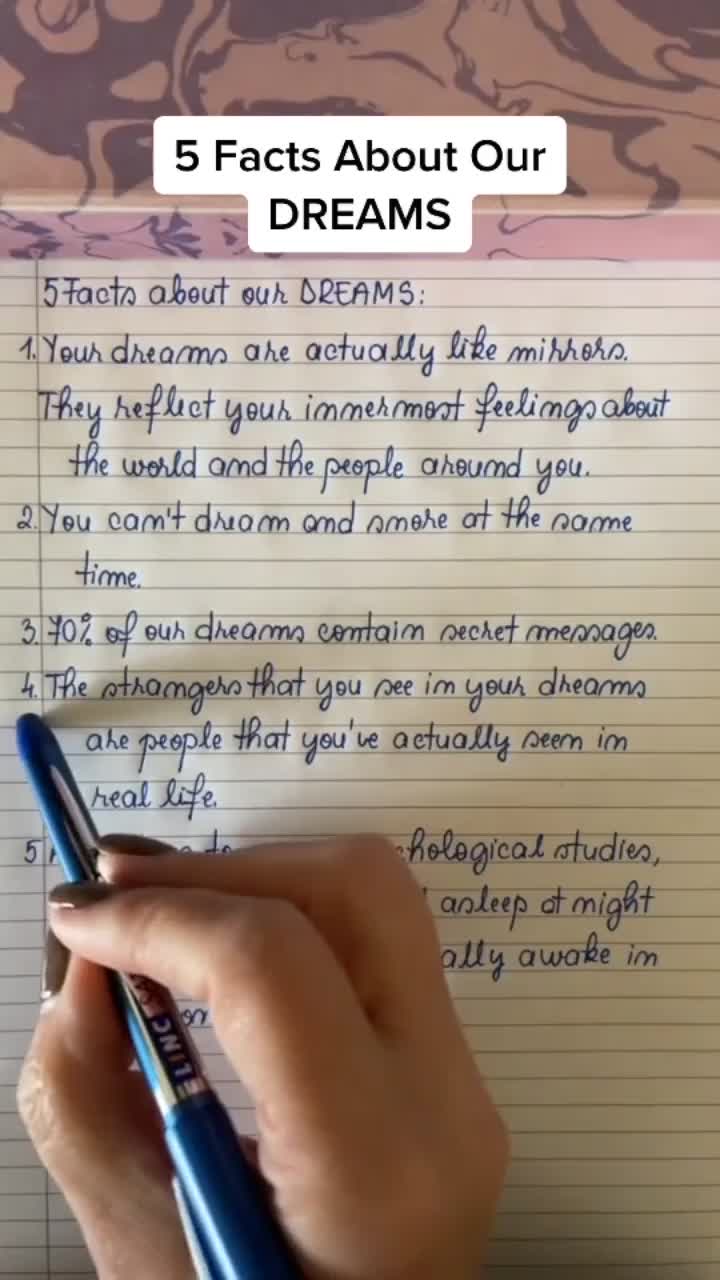 5 Facts About Our
DREAMS
5 Facts about our DREAMS:
1. Your dreams are actually like mirrors.
They reflect your innermost feelings about
the world and the people around you.
2. You can't dream and snore at the same
time.
3. 70% of our dreams contain secret messages.
4. The strangers that you see in your dreams
are people that you've actually seen in
real life.
5 studies,
asleep at night
awake in